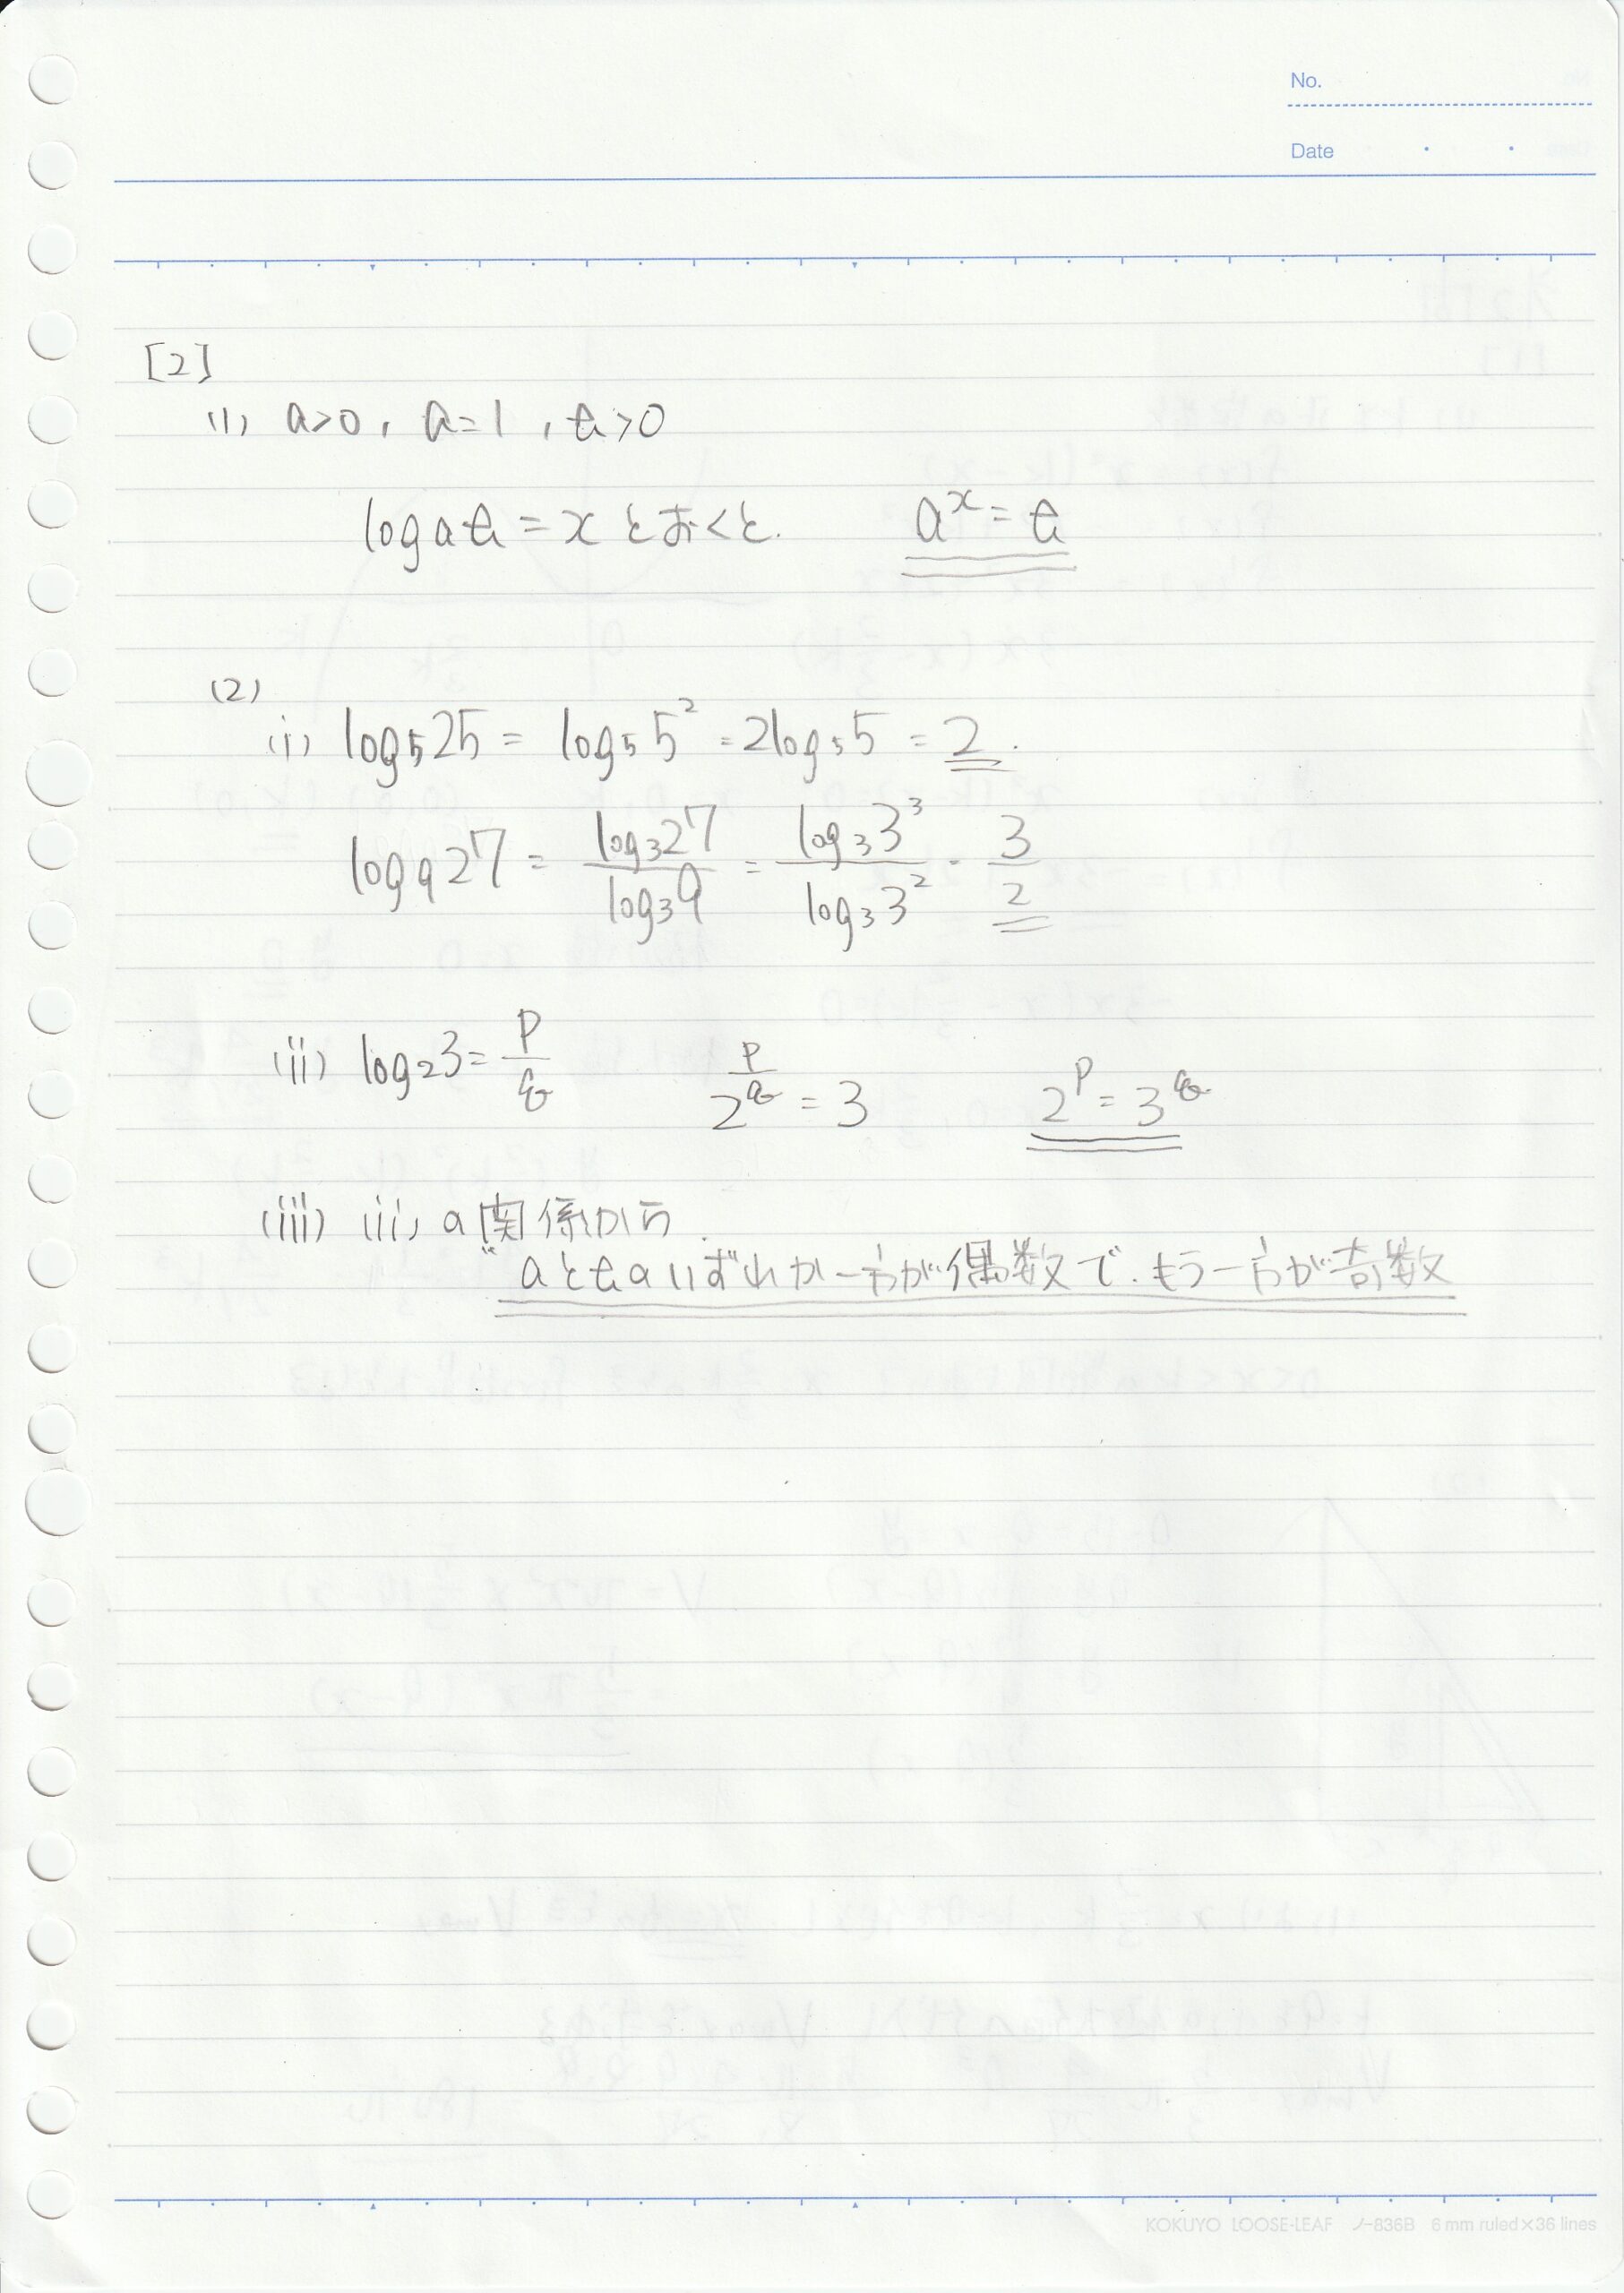 No.
Date
[2]
(1) a>0, a=1, b>0
log_a b = x とおくと. a^x = b
(2)
(i) log_5 25 = log_5 5^2 = 2log_5 5 = 2.
log_9 27 = \frac{log_3 27}{log_3 9} = \frac{log_3 3^3}{log_3 3^2} = \frac{3}{2}
(ii) log_2 3 = \frac{p}{q} 2^{\frac{p}{q}} = 3 2^p = 3^q
(iii) (ii) の関係から.
"aとbのいずれか一方が偶数で. もう一方が奇数
KOKUYO LOOSE-LEAF ノ-836B 6 mm ruled×36 lines